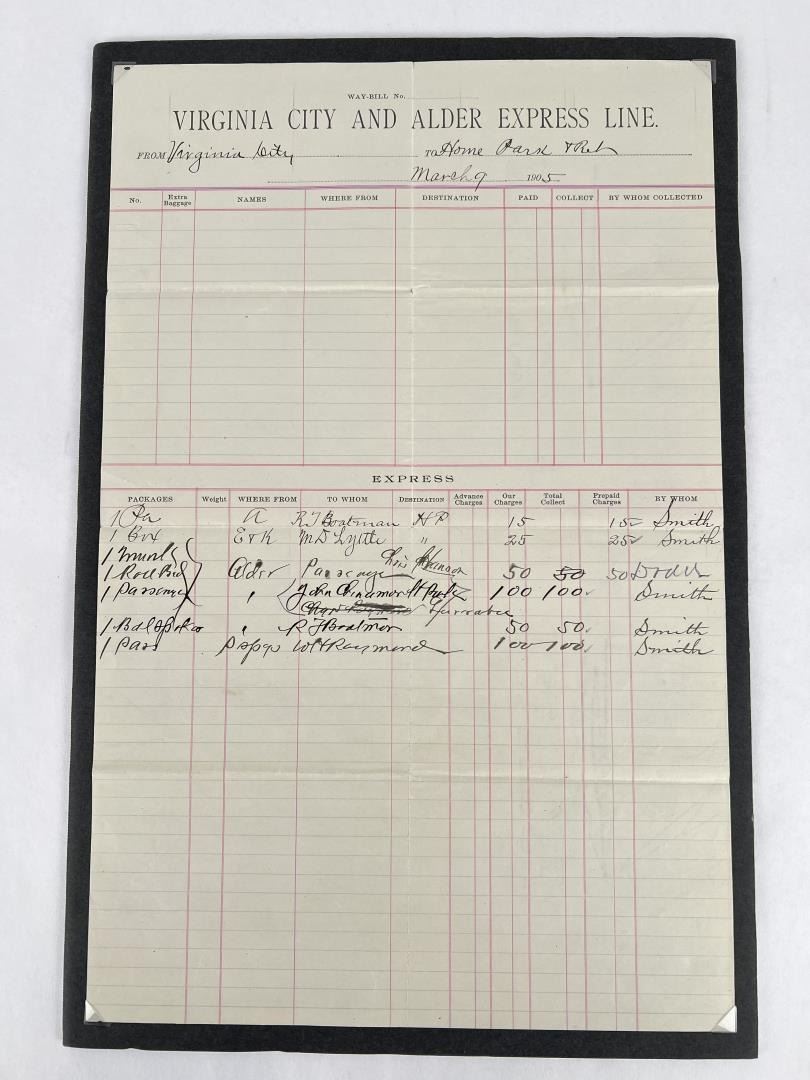 WAY-BILL No.
VIRGINIA CITY AND ALDER EXPRESS LINE.
FROM Virginia City TO Home Park & Ret
March 9 1905
No. Extra Baggage NAMES WHERE FROM DESTINATION PAID COLLECT BY WHOM COLLECTED
EXPRESS
PACKAGES Weight WHERE FROM TO WHOM DESTINATION Advance Charges Our Charges Total Collect Prepaid Charges BY WHOM
1 A R F Boatman H P 15 15 Smith
1 Box E & K M D Lyttle " 25 25 Smith
1
1 Roll Alder Passenger Johnson 50 50 50
1 Passenger " John 100 100 Smith
1 " R F Boatman 50 50 Smith
1 Pass W H Raymond 100 100 Smith